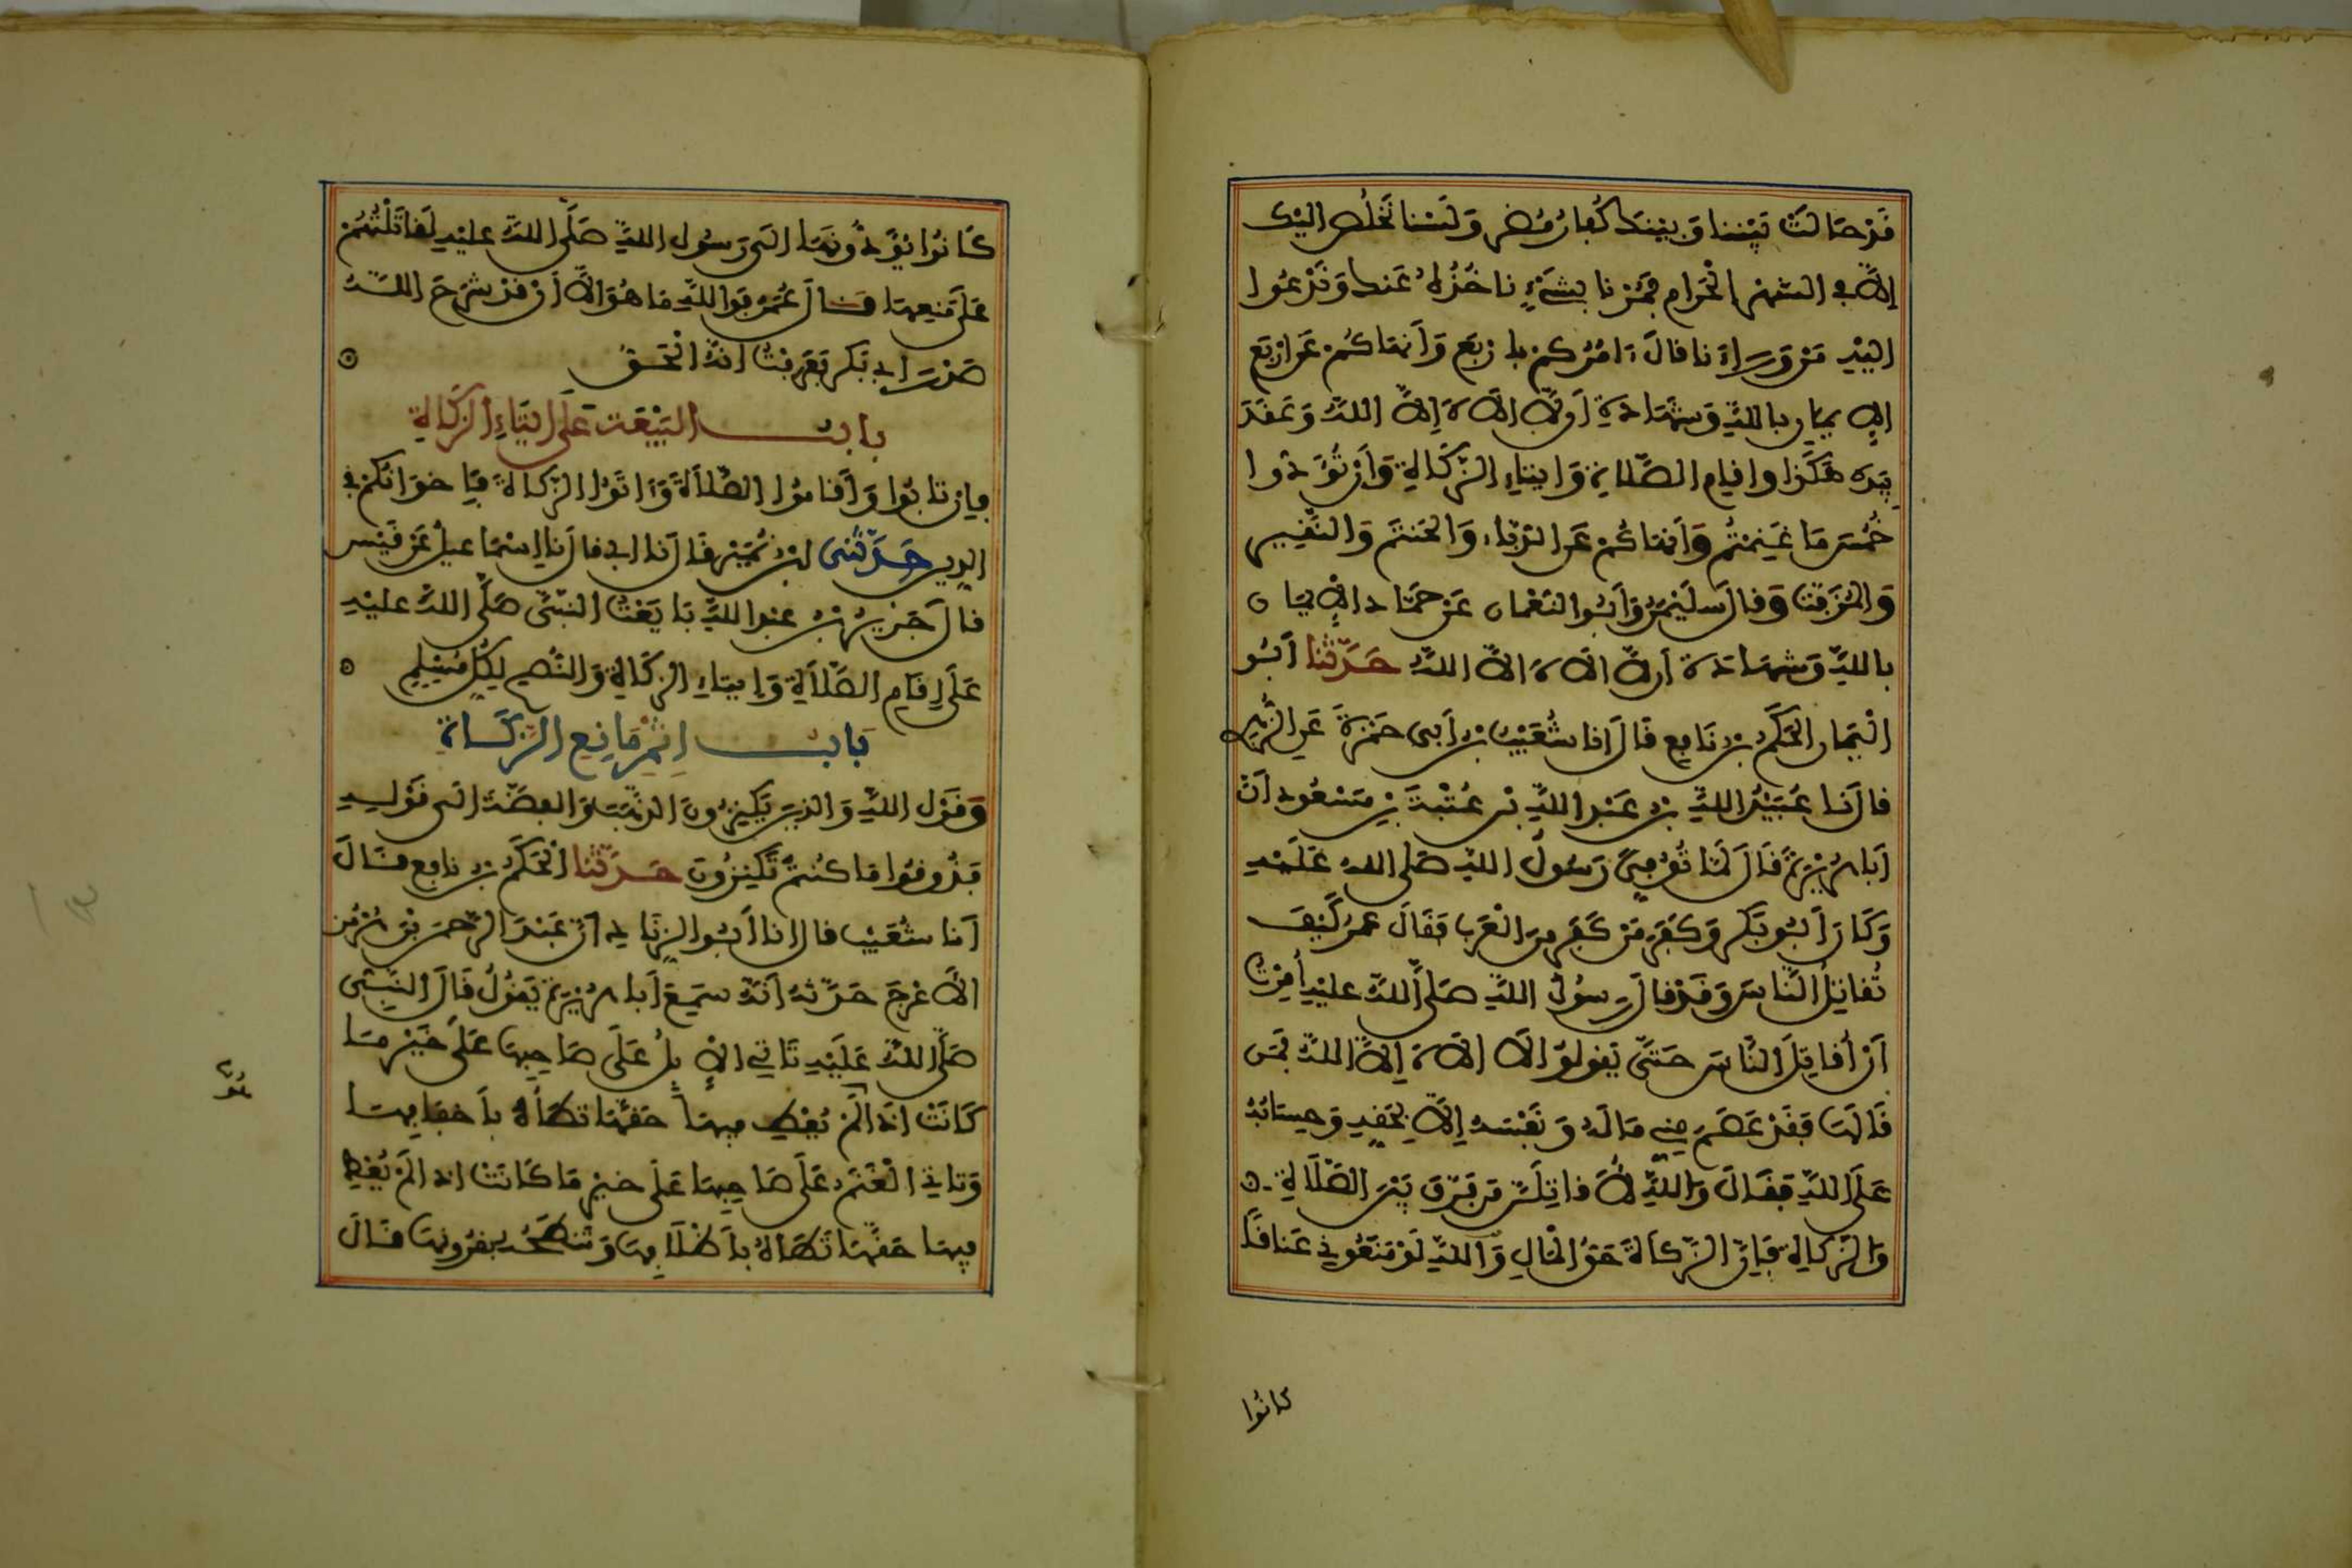 قَدْ حَالَتْ بَيْنَنَا وَبَيْنَكَ كُفَّارُ مُضَر وَلَسْنَا نَخْلُصُ إليْك
إلاَّ في الشهْرِ الْحَرام فَمُرْنا بِشَيْءٍ ناخُذُهُ عَنك وَنَدْعُوا
اليْهِ مَنْ وَرَاءَنا قالَ ءَامُرُكم بِأرْبَع وَأنهَاكُمْ عَن ارْبَع
الإيمان باللهِ وَشهَادَةِ أن لاَّ الَاهَ إلاَّ اللهُ وَعَقَدَ
بِيَدِهِ هَكَذا وإقام الصَّلاةِ وَإيتاءِ الزَّكَاةِ وَأن تُؤَدُّوا
خُمُسَ مَا غَنِمْتُمْ وَأنهاكُمْ عَن الدُّبَّاء وَالحَنْتَم وَالنَّقِير
وَالمُزَفَّت وَقالَ سُلَيْمَنُ وَأبُو النعْمان عَنْ حَمَّاد الإيمان
بالله وَشهَادَة أن لاَّ الَاهَ الاَّ اللهُ حَدَّثنا أبُو
الْيَمان الحَكَمُ بْنُ نَافِع قَالَ أنا شُعَيْبُ بْنُ أبي حَمْزَةَ عَن الزُّهْرِي
قالَ نَا عُبَيْدُ اللهِ بْنُ عَبْدِ اللهِ بْنِ عُتْبَةَ بْنِ مَسْعُود أنَّ
أبَا هُرَيْرَةَ قَالَ لَمَّا تُوُفِّيَ رَسُولُ اللهِ صَلى الله عَلَيْهِ
وَكَانَ أبُو بَكْر وَكَفَرَ مَنْ كَفَرَ مِنَ الْعَرَب فَقَالَ عمَرُ كَيْفَ
تُقاتِلُ النَّاسَ وَقَدْ قالَ رَسُولُ اللهِ صَلَّى اللهُ عليْهِ أُمِرْتُ
أنْ أُقاتِلَ النَّاسَ حَتَّى يَقولوُا لَا الَاهَ إلاَّ اللهُ فَمَن
قَالَهَا فَقَدْ عَصَمَ مِنِّي مَالَهُ وَنَفْسَهُ إلاَّ بِحَقِّهِ وَحِسَابُهُ
عَلَى اللهِ فَقَالَ وَاللهِ لَأُقاتِلَنَّ مَن فَرَّقَ بَيْنَ الصَّلَاةِ
وَالزَّكاةِ فَإنَّ الزَّكَاةَ حَقُّ المَالِ وَاللهِ لَوْ مَنَعُوني عَنَاقًا
كانُوا
كَانُوا يُؤَدُّونَهَا الَى رَسُولِ اللهِ صَلَّى اللهُ عليْهِ لَقَاتَلْتُهُمْ
عَلَى مَنعِهَا قَالَ عُمَرُ فَوَاللهِ مَا هُوَ الاَّ أنْ قَدْ شَرَحَ اللهُ
صَدْرَ أبي بَكْر فَعَرَفْتُ أنَّهُ الْحَقُّ
بابُ البَيْعَة عَلَى إيتَاءِ الزَّكَاةِ
فإن تابُوا وَأقَامُوا الصَّلاَةَ وَءَاتَوُا الزَّكاةَ فَإخوَانُكُمْ في
الدِّين حَدَّثَني ابْنُ نُمَيْر قَالَ نَا أبي قالَ نَا إسْمَاعِيلُ عَنْ قَيْس
قالَ جَرِيرُ بْنُ عَبْدِ اللهِ بَايَعْتُ النبيَّ صَلَّى اللهُ عليْهِ
عَلَى إقَام الصَّلاَةِ وَإيتَاءِ الزَّكَاةِ وَالنُّصْحِ لِكُلِّ مُسْلِمٍ
بَابُ إثْمِ مَانِع الزَّكَاةِ
وَقَوْل اللهِ وَالذِينَ يَكْنِزُونَ الذَّهَبَ وَالفِضَّةَ الَى قَوْلِهِ
فَذُوقُوا مَا كُنتُمْ تَكْنِزُونَ حَدَّثنا الْحَكَمُ بْنُ نافِع قَالَ
أنا شُعَيْب قالَ انا أبُو الزِّنَادِ أنَّ عَبْدَ الرَّحمَنِ بْنَ هُرْمُز
الأَعْرَجَ حَدَّثهُ أنَّهُ سَمِعَ أبَا هُرَيْرَةَ يَقُولُ قَالَ النَّبِيُّ
صَلَّى اللهُ عَلَيْهِ تَأتي الإبِلُ عَلَى صَاحِبِهَا عَلَى خَيْرِ مَا
كَانَتْ إذَا لَمْ يُعْطِ فِيهَا حَقَّهَا تَطَأُهُ بأَخْفَافِهَا
وَتَاتي الْغَنَمُ عَلَى صَاحِبِهَا عَلَى خَيْرِ مَا كَانَتْ إذا لَمْ يُعْطِ
فِيهَا حَقَّهَا تَطَاهُ بأَظْلَافِهَا وَتَنطَحُهُ بِقُرُونِهَا قَالَ